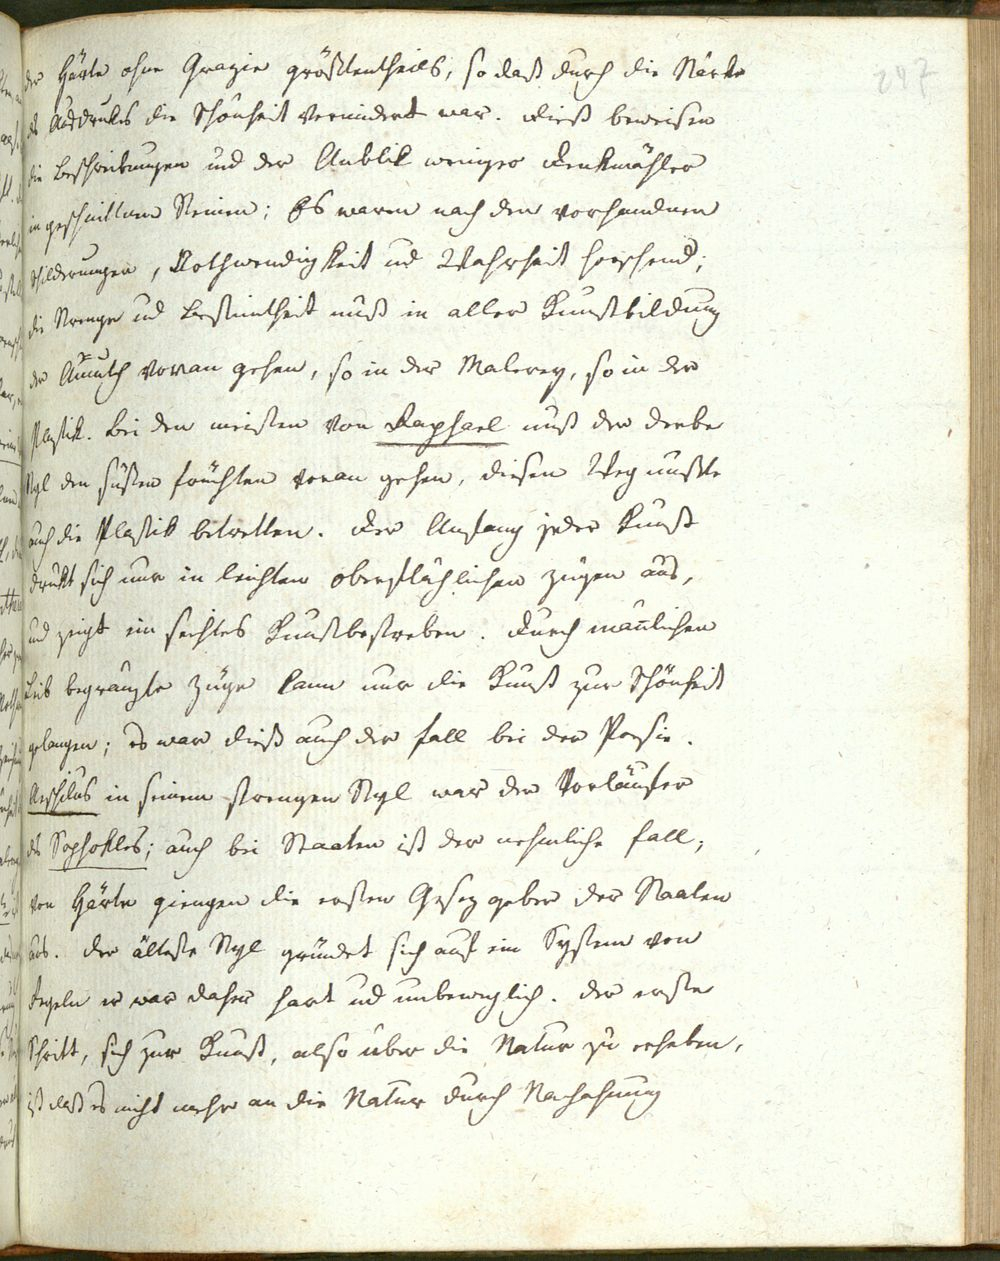 247
der Härte ohne Grazie größtentheils, so daß durch die Stärke
des Ausdruks die Schönheit vermindert war. Dieß beweisen
die Beschreibungen und der Anblik weniger Denkmähler
in geschnittnen Steinen; Es waren nach den vorhandnen
Schilderungen, Nothwendigkeit und Wahrheit herschend;
die Strenge und Bestimtheit muß in aller Kunstbildung
der Anmuth voran gehen, so in der Malerey, so in der
Plastik. Bei den meisten von Raphael muß der derbe
Styl den süßen früchten voran gehen, diesen Weg mußte
auch die Plastik betretten. Der Anfang jeder Kunst
drükt sich nur in leichten oberflächlichen zügen aus,
und zeigt ein seichtes Kunstbestreben. Durch mañlichen
begränzte züge kann nur die Kunst zur Schönheit
gelangen; es war dieß auch der fall bei der Poesie.
Aeschilus in seinem strengen Styl war der Vorläufer
des Sophokles; auch bei Staaten ist der nehmliche fall,
von Härte giengen die ersten Gesezgeber der Staaten
aus. Der älteste Styl gründet sich auf ein System von
Regeln er war daher hart und unbeweglich. Der erste
Schritt, sich zur Kunst, also über die Natur zu erheben,
ist daß es nicht mehr an die Natur durch Nachahmung